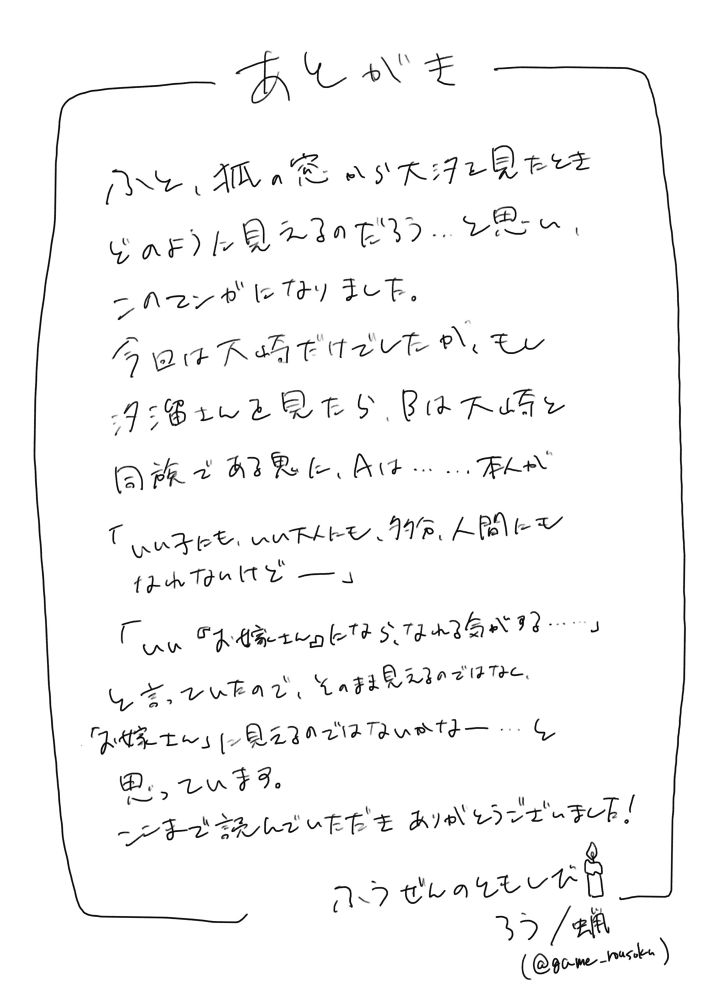 あとがき
ふと、狐の窓から大汐を見たとき
どのように見えるのだろう…と思い、
このマンガになりました。
今回は大崎だけでしたが、もし
汐溜さんを見たら、Bは大崎と
同族である鬼に、Aは……本人が
「いい子にも、いい大人にも、多分、人間にも
なれないけどー」
「いい『お嫁さん』になら、なれる気がする……」
と言っていたので、そのまま見えるのではなく、
「お嫁さん」に見えるのではないかなー…と
思っています。
ここまで読んでいただきありがとうございました!
ふうぜんのともしび
ろう/蝋
(@game_rousoku)